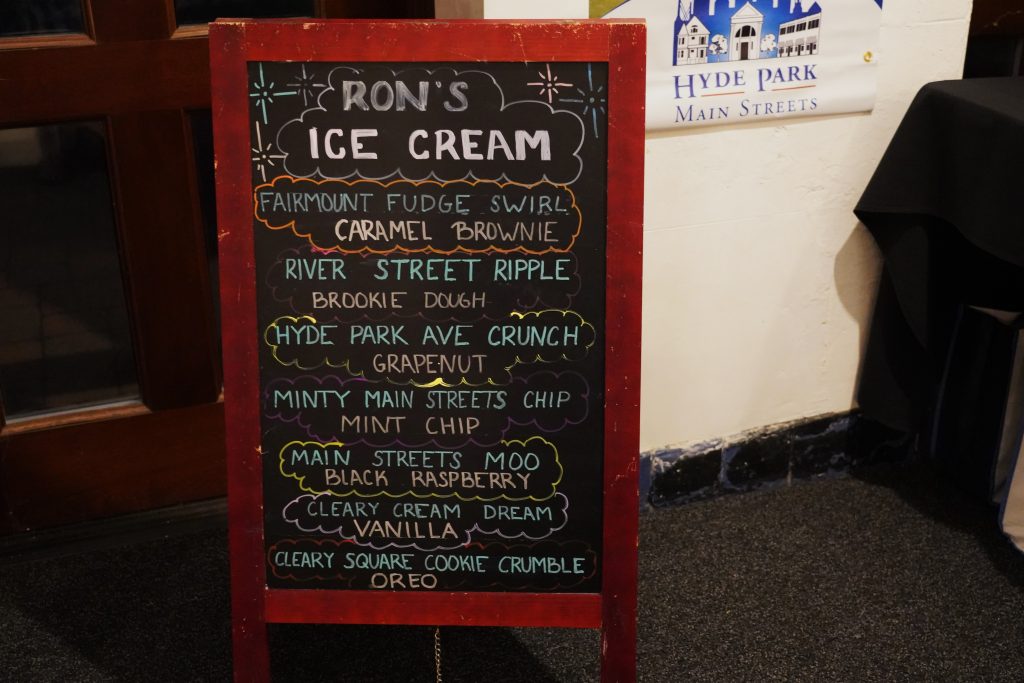 RON'S
ICE CREAM
FAIRMOUNT FUDGE SWIRL
CARAMEL BROWNIE
RIVER STREET RIPPLE
BROOKIE DOUGH
HYDE PARK AVE CRUNCH
GRAPENUT
MINTY MAIN STREETS CHIP
MINT CHIP
MAIN STREETS MOO
BLACK RASPBERRY
CLEARY CREAM DREAM
VANILLA
CLEARY SQUARE COOKIE CRUMBLE
OREO
HYDE PARK
MAIN STREETS